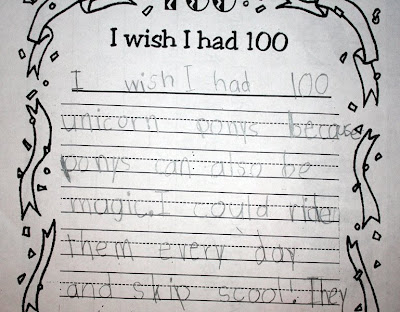 100
I wish I had 100
I wish I had 100
unicorn ponys because
ponys can also be
magic. I could ride
them every day
and skip scool! They